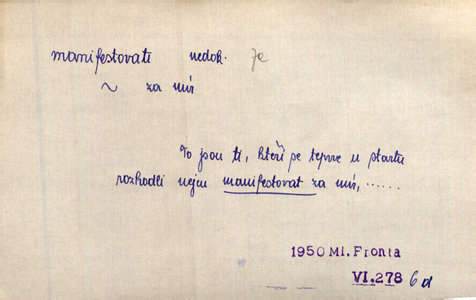 manifestovati nedok. 7c
~ za mír
To jsou ti, kteří se teprve u startu
rozhodli nejen manifestovat za mír, ......
1950 Ml. Fronta
VI.278 6d